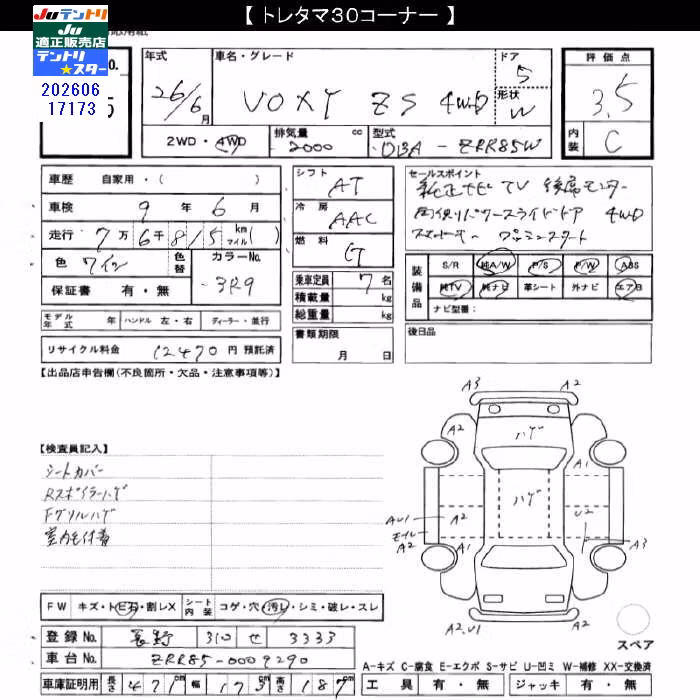 【 トレタマ30コーナー 】
JUテントリ
JU
適正販売店
テントリ
★スター
202606
17173
年式 車名・グレード ドア 評価点
26/6月 VOXY ZS 4WD 5 3.5
形状 W
2WD・4WD 排気量 2000 cc 型式 DBA-ZRR85W 内装 C
車歴 自家用・( )
車検 9年 6月
走行 7万6千815 km マイル( )
色 ワイン 色替 カラーNo. 3R9
保証書 有・無
シフト AT
冷房 AAC
燃料
乗車定員 7名
積載量 kg
総重量 kg
セールスポイント
純正ナビ TV 後席モニター
両側パワースライドドア 4WD
プッシュスタート
装備品 S/R 純A/W P/S P/W ABS
純TV 純ナビ 革シート 外ナビ エアB
ナビ型番:
モデル年式 年 ハンドル 左・右 ディーラー・並行
書類期限 月 日
後日品
リサイクル料金 12470 円 預託済
【出品店申告欄(不良箇所・欠品・注意事項等)】
【検査員記入】
シートカバー
Rスポイラーハゲ
Fグリルハゲ
室内毛付着
A3 A2
A2 ハゲ A2
A1
ハゲ
AU1 A2 U2
モール A2 A1 A2 A3
A2,U1
スペア
FW キズ・トビ石・割レX シート内装 コゲ・穴・汚レ・シミ・破レ・スレ
登録No. 長野 310 せ 3333
車台No. ZRR85-0009290
A-キズ C-腐食 E-エクボ S-サビ U-凹ミ W-補修 XX-交換済
車庫証明用 長さ 471cm 幅 173cm 高さ 187cm
工具 有・無 ジャッキ 有・無